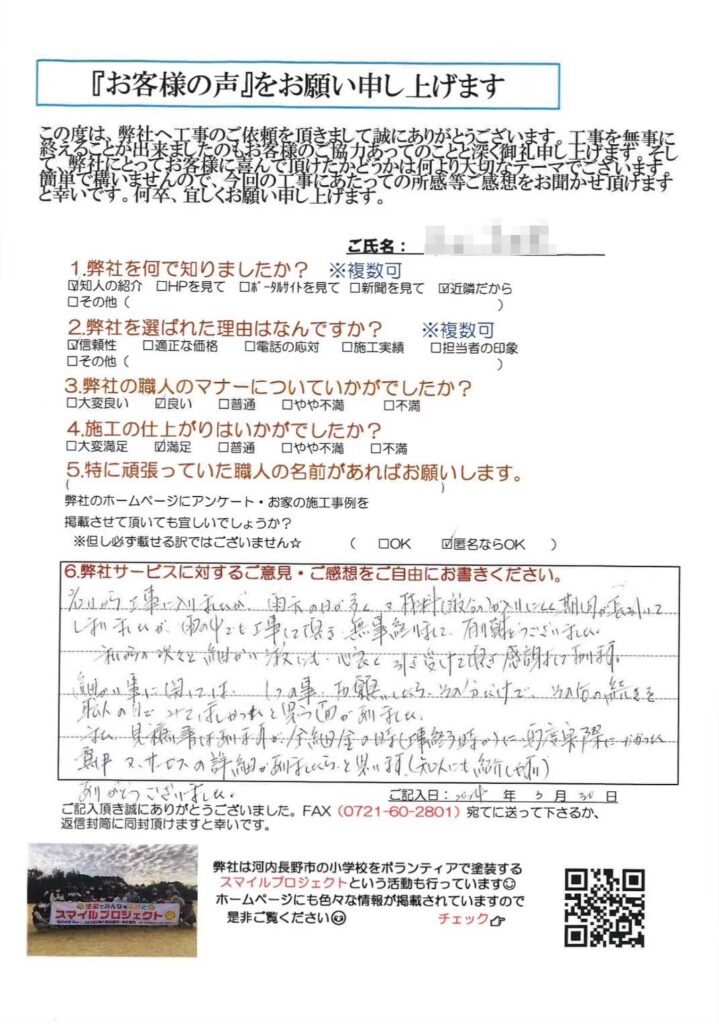 『お客様の声』をお願い申し上げます
この度は、弊社へ工事のご依頼を頂きまして誠にありがとうございます。工事を無事に
終えることが出来ましたのもお客様のご協力あってのことと深く御礼申し上げます。そし
て、弊社にとってお客様に喜んで頂けたかどうかは何より大切なテーマでございます。
簡単で構いませんので、今回の工事にあたっての所感等ご感想をお聞かせ頂けます
と幸いです。何卒、宜しくお願い申し上げます。
ご氏名：
1.弊社を何で知りましたか？ ※複数可
☑知人の紹介 □HPを見て □ポータルサイトを見て □新聞を見て ☑近隣だから
□その他（ ）
2.弊社を選ばれた理由はなんですか？ ※複数可
☑信頼性 □適正な価格 □電話の応対 □施工実績 □担当者の印象
□その他（ ）
3.弊社の職人のマナーについていかがでしたか？
□大変良い ☑良い □普通 □やや不満 □不満
4.施工の仕上がりはいかがでしたか？
□大変満足 ☑満足 □普通 □やや不満 □不満
5.特に頑張っていた職人の名前があればお願いします。
（ ）
弊社のホームページにアンケート・お家の施工事例を
掲載させて頂いても宜しいでしょうか？
※但し必ず載せる訳ではございません☆ （ □OK ☑匿名ならOK ）
6.弊社サービスに対するご意見・ご感想をご自由にお書きください。
から工事に入りましたが、雨天の日が多く、材料が入りにくく期間が長引いて
しまいましたが、雨の中でも工事して頂き無事終りまして、有難とうございました。
細かい にも、心良く引き受けて頂き感謝して居ります。
細かい事に関しては、1つの事、お願いしたら、その分だけで、その后の続きを
職人の で みてほしかったと思う面が ありました。
又、見積り事は あります が、 金の時(工事終る時 )に、再度実際にかかった
費用 サービスの詳細がありましたら と思います(知人にも紹介し )
ありがとうございました。
ご記入日： 年 月 30 日
ご記入頂き誠にありがとうございました。FAX（0721-60-2801）宛てに送って下さるか、
返信封筒に同封頂けますと幸いです。
弊社は河内長野市の小学校をボランティアで塗装する
スマイルプロジェクトという活動も行っています☺
ホームページにも色々な情報が掲載されていますので
是非ご覧ください☺ チェック👉
スマイルプロジェクト